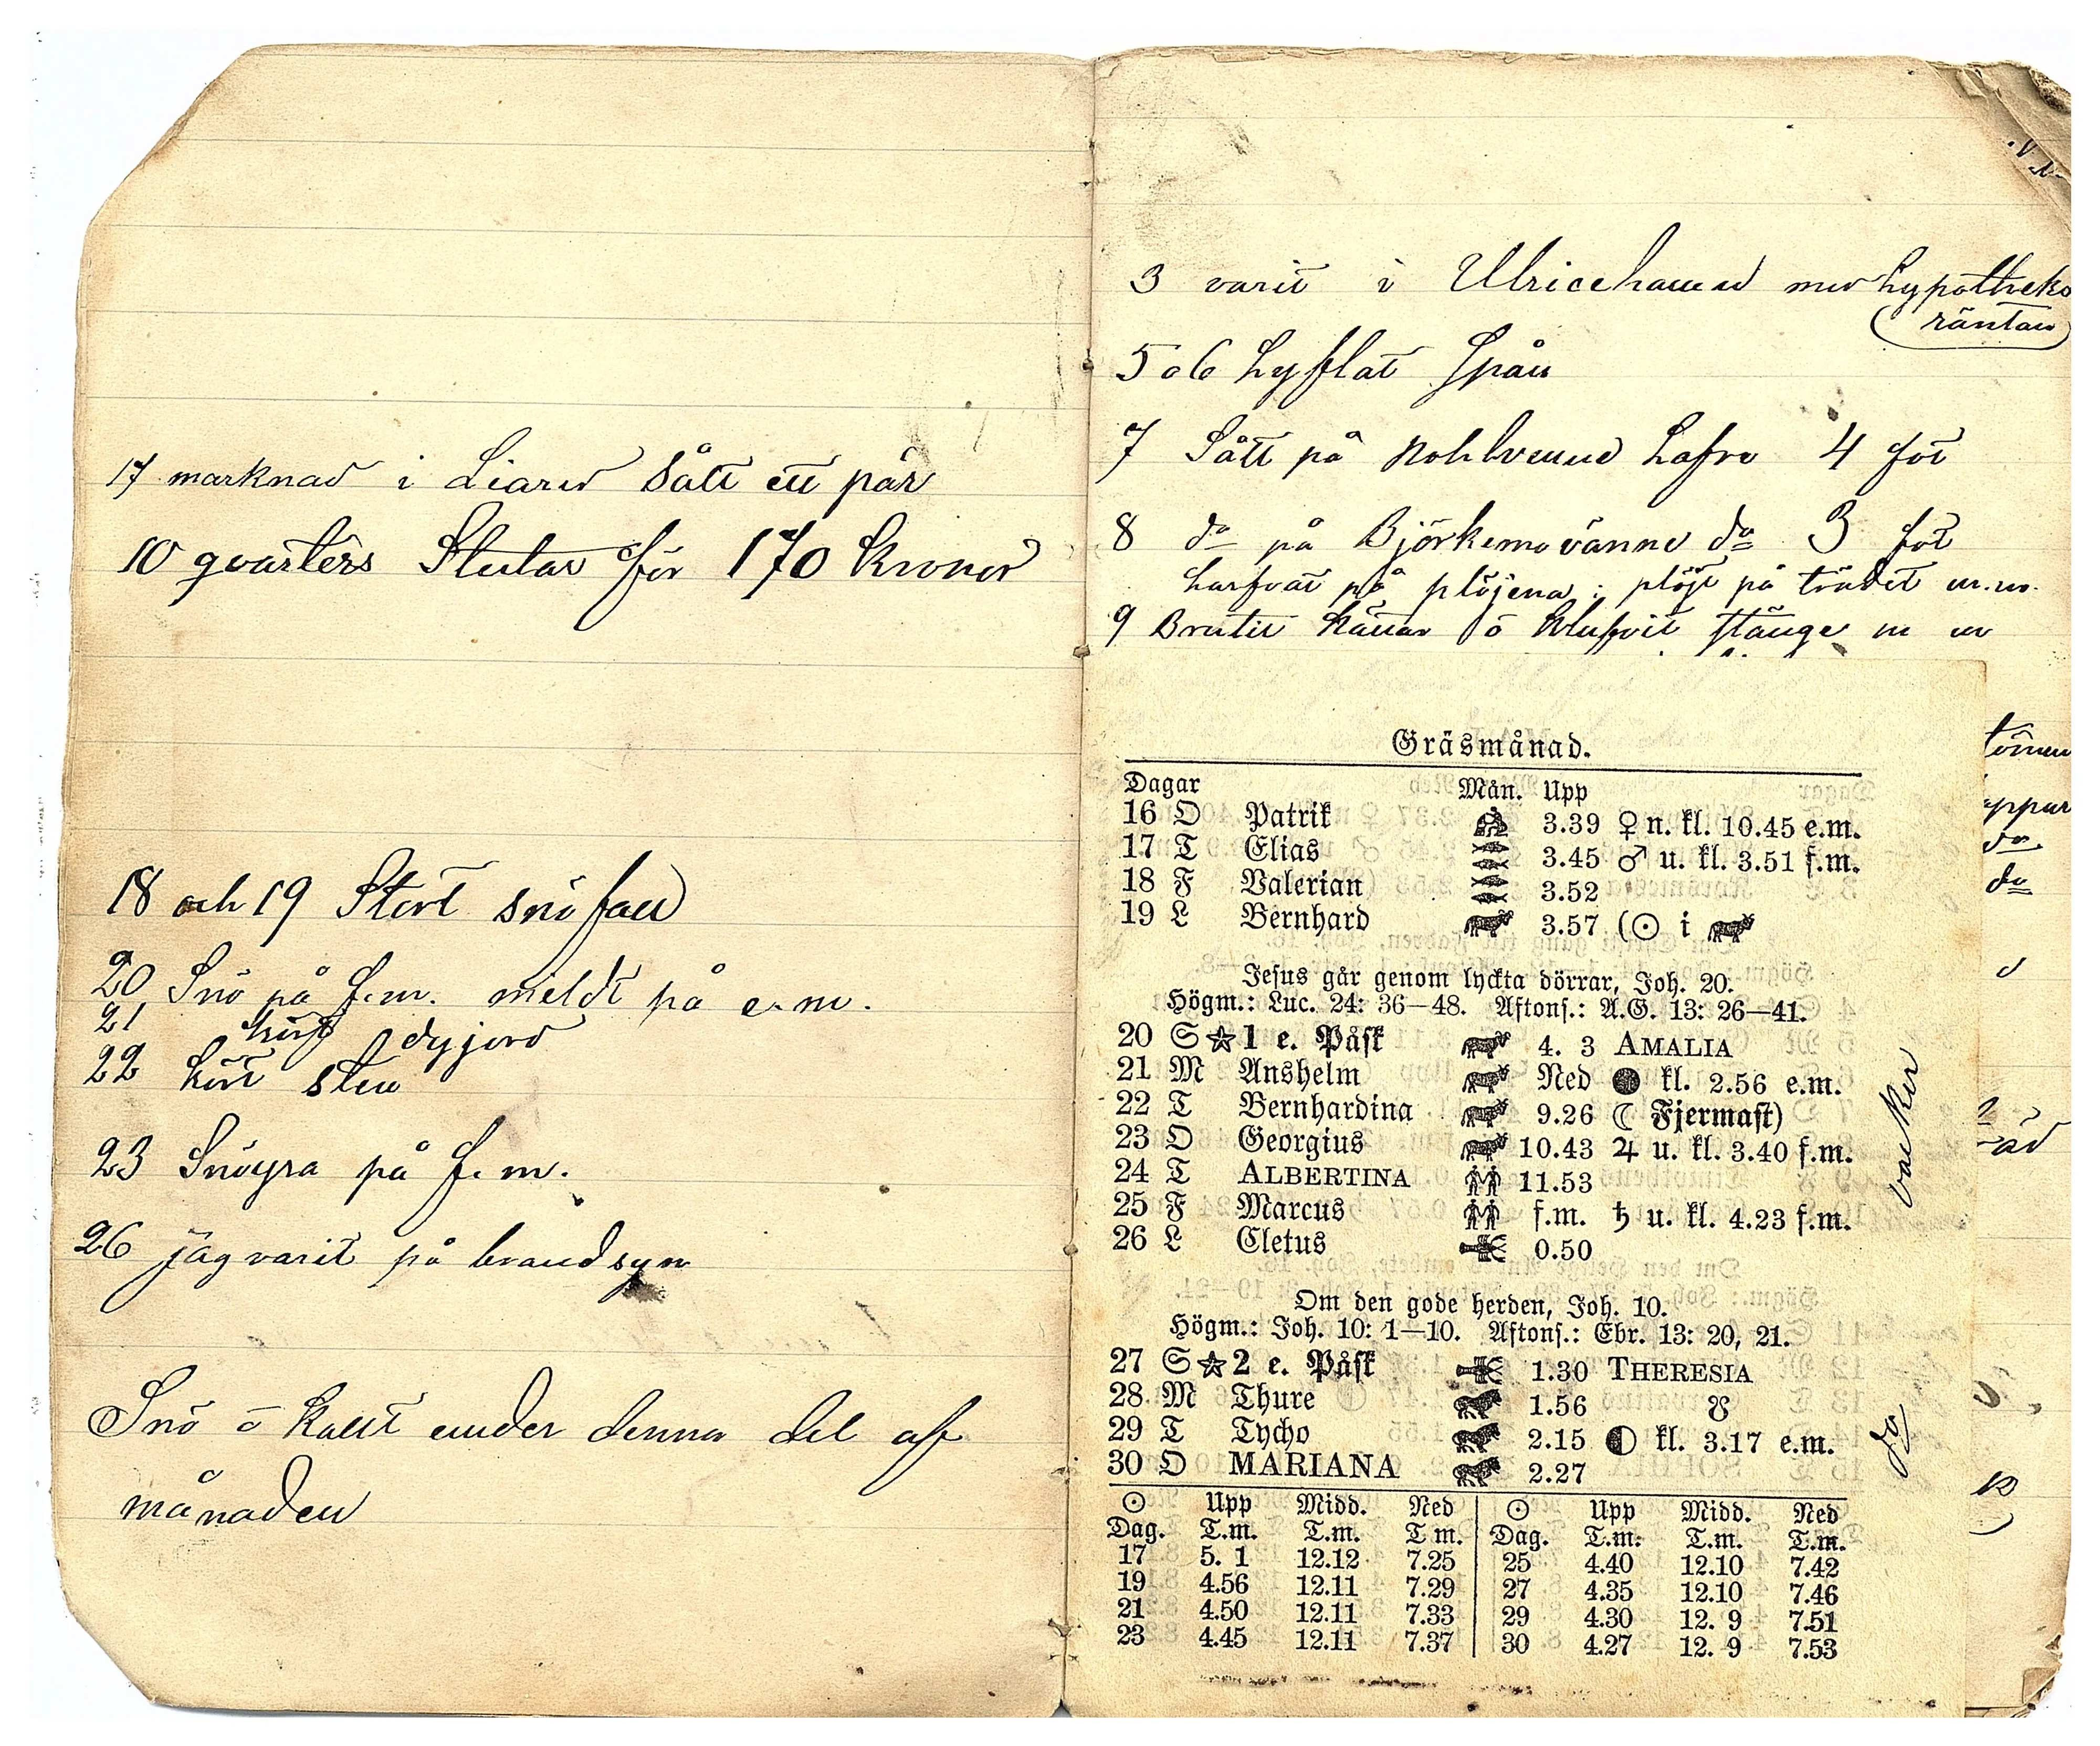 17 marknad i Liared Sålt ett par
10 qvarters Stutar för 170 Kronor
18 och 19 Stort snöfall
20 Snö på f.m. mildt på e.m.
21 kört dyjord
22 kört sten
23 Snöyra på f.m.
26 jag varit på brandsyn
Snö o kallt under denna del af
månaden
3 varit i Ulricehamn med hypotheks
räntan
5 o 6 hyflat Spån
7 Sått på hafre 4 fot
8 do på do 3 fot
harfvat på plöjena; plöjt på trädet m.m.
9 Brutit o klufvit m m
Gräsmånad.
Dagar Mån. Upp
16 O Patrik 3.39 ♀ n. kl. 10.45 e.m.
17 T Elias 3.45 ♂ u. kl. 3.51 f.m.
18 F Valerian 3.52
19 L Bernhard 3.57 (☉ i
Jesus går genom lyckta dörrar, Joh. 20.
Högm.: Luc. 24: 36—48. Aftons.: A.G. 13: 26—41.
20 S ☆ 1 e. Påsk 4. 3 AMALIA
21 M Anshelm Ned ● kl. 2.56 e.m.
22 T Bernhardina 9.26 ☾ Fjermast)
23 O Georgius 10.43 ♃ u. kl. 3.40 f.m.
24 T ALBERTINA 11.53
25 F Marcus f.m. ♄ u. kl. 4.23 f.m.
26 L Cletus 0.50
vacker
Om den gode herden, Joh. 10.
Högm.: Joh. 10: 1—10. Aftons.: Ebr. 13: 20, 21.
27 S ☆ 2 e. Påsk 1.30 THERESIA
28 M Thure 1.56 ☋
29 T Tycho 2.15 ◐ kl. 3.17 e.m.
30 O MARIANA 2.27
do
☉ Upp Midd. Ned ☉ Upp Midd. Ned
Dag. T.m. T.m. T m. Dag. T.m. T.m. T.m.
17 5. 1 12.12 7.25 25 4.40 12.10 7.42
19 4.56 12.11 7.29 27 4.35 12.10 7.46
21 4.50 12.11 7.33 29 4.30 12. 9 7.51
23 4.45 12.11 7.37 30 4.27 12. 9 7.53
do